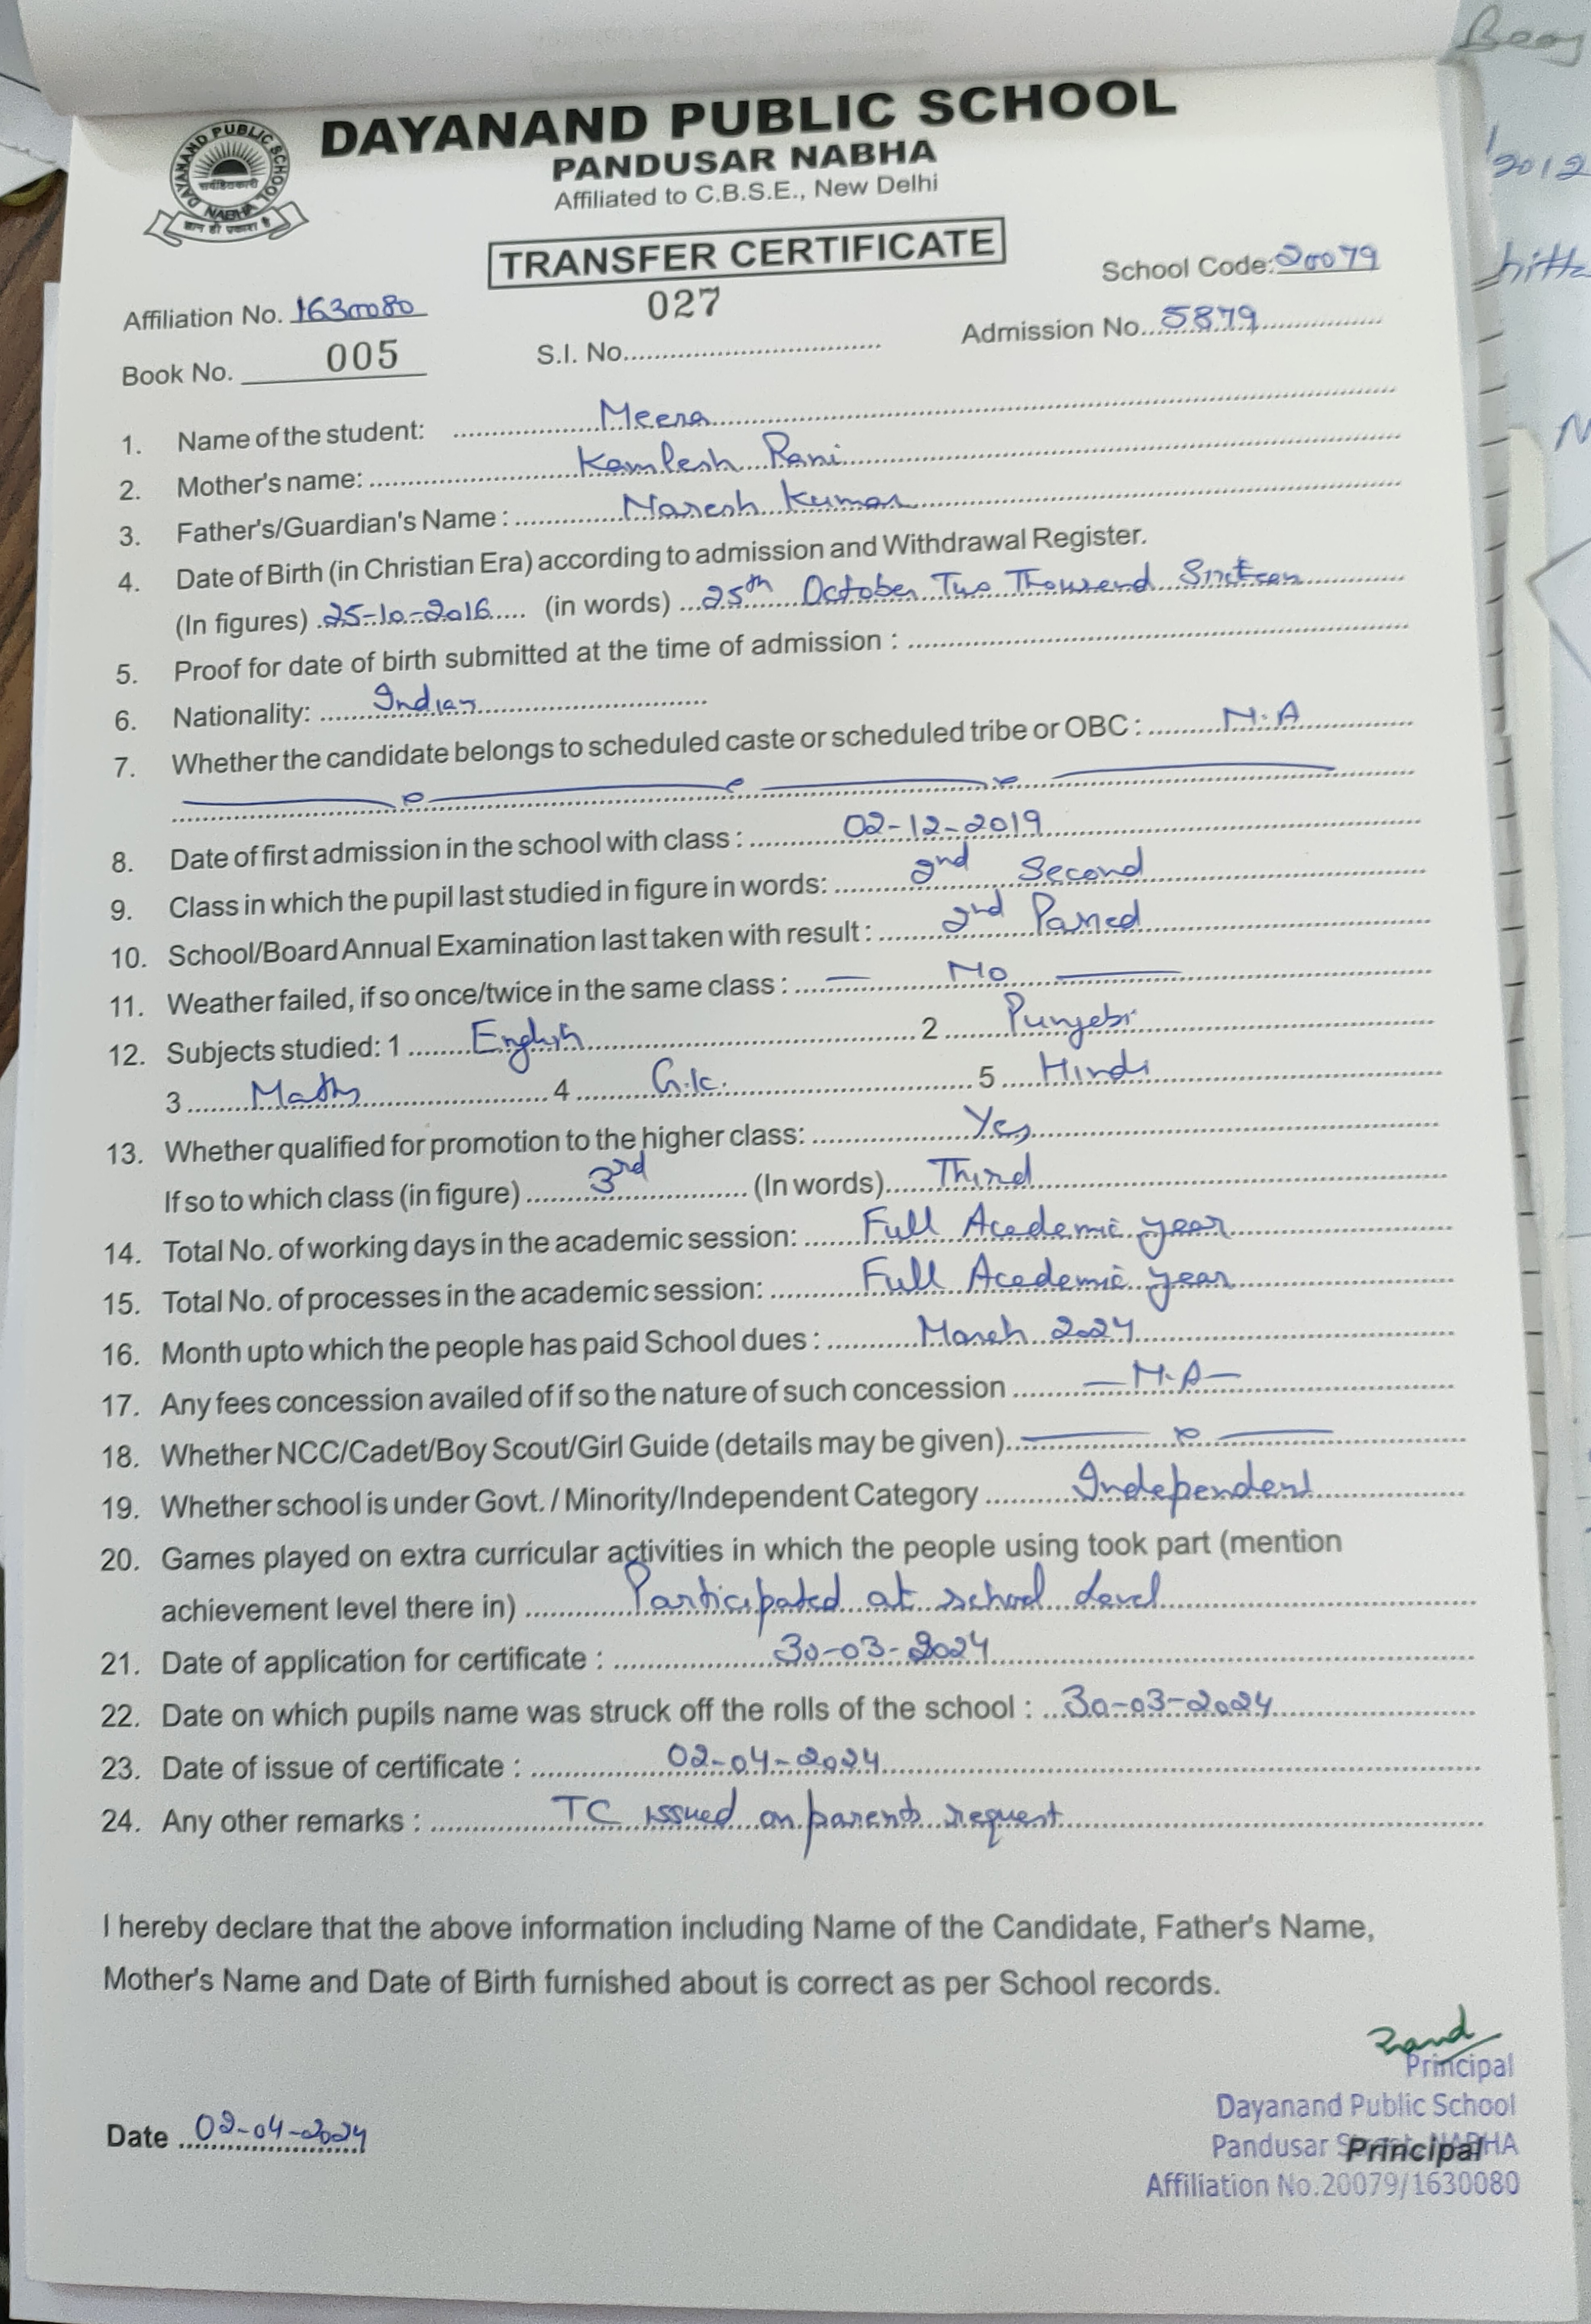 DAYANAND PUBLIC SCHOOL
PANDUSAR NABHA
Affiliated to C.B.S.E., New Delhi
DAYANAND PUBLIC SCHOOL
NABHA
ज्ञान ही प्रकाश है
TRANSFER CERTIFICATE
School Code: 20079
Affiliation No. 1630080
027
Admission No. 5879
Book No. 005
S.I. No.
1. Name of the student: Meera
2. Mother's name: Kamlesh Rani
3. Father's/Guardian's Name : Naresh Kumar
4. Date of Birth (in Christian Era) according to admission and Withdrawal Register.
(In figures) 25-10-2016 (in words) 25th October Two Thousand Sixteen
5. Proof for date of birth submitted at the time of admission :
6. Nationality: Indian
7. Whether the candidate belongs to scheduled caste or scheduled tribe or OBC : N.A
8. Date of first admission in the school with class : 02-12-2019
9. Class in which the pupil last studied in figure in words: 2nd Second
10. School/Board Annual Examination last taken with result : 2nd Passed
11. Weather failed, if so once/twice in the same class : — No —
12. Subjects studied: 1 English 2 Punjabi
3 Maths 4 G.k. 5 Hindi
13. Whether qualified for promotion to the higher class: Yes
If so to which class (in figure) 3rd (In words) Third
14. Total No. of working days in the academic session: Full Academic year
15. Total No. of processes in the academic session: Full Academic year
16. Month upto which the people has paid School dues : March 2024
17. Any fees concession availed of if so the nature of such concession —N.A—
18. Whether NCC/Cadet/Boy Scout/Girl Guide (details may be given)
19. Whether school is under Govt. / Minority/Independent Category Independent
20. Games played on extra curricular activities in which the people using took part (mention
achievement level there in) Participated at school level
21. Date of application for certificate : 30-03-2024
22. Date on which pupils name was struck off the rolls of the school : 30-03-2024
23. Date of issue of certificate : 02-04-2024
24. Any other remarks : TC issued on parents request
I hereby declare that the above information including Name of the Candidate, Father's Name,
Mother's Name and Date of Birth furnished about is correct as per School records.
Principal
Dayanand Public School
Date 02-04-2024
Pandusar Street, NABHA
Principal
Affiliation No.20079/1630080
2012